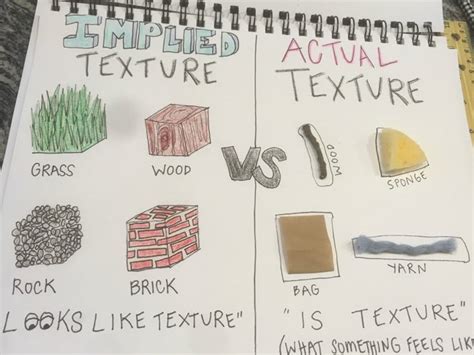 IMPLIED
TEXTURE
GRASS
WOOD
ROCK
BRICK
LOOKS LIKE TEXTURE"
VS
ACTUAL
TEXTURE
WOOD
SPONGE
BAG
YARN
"IS TEXTURE"
(WHAT SOMETHING FEELS LIK